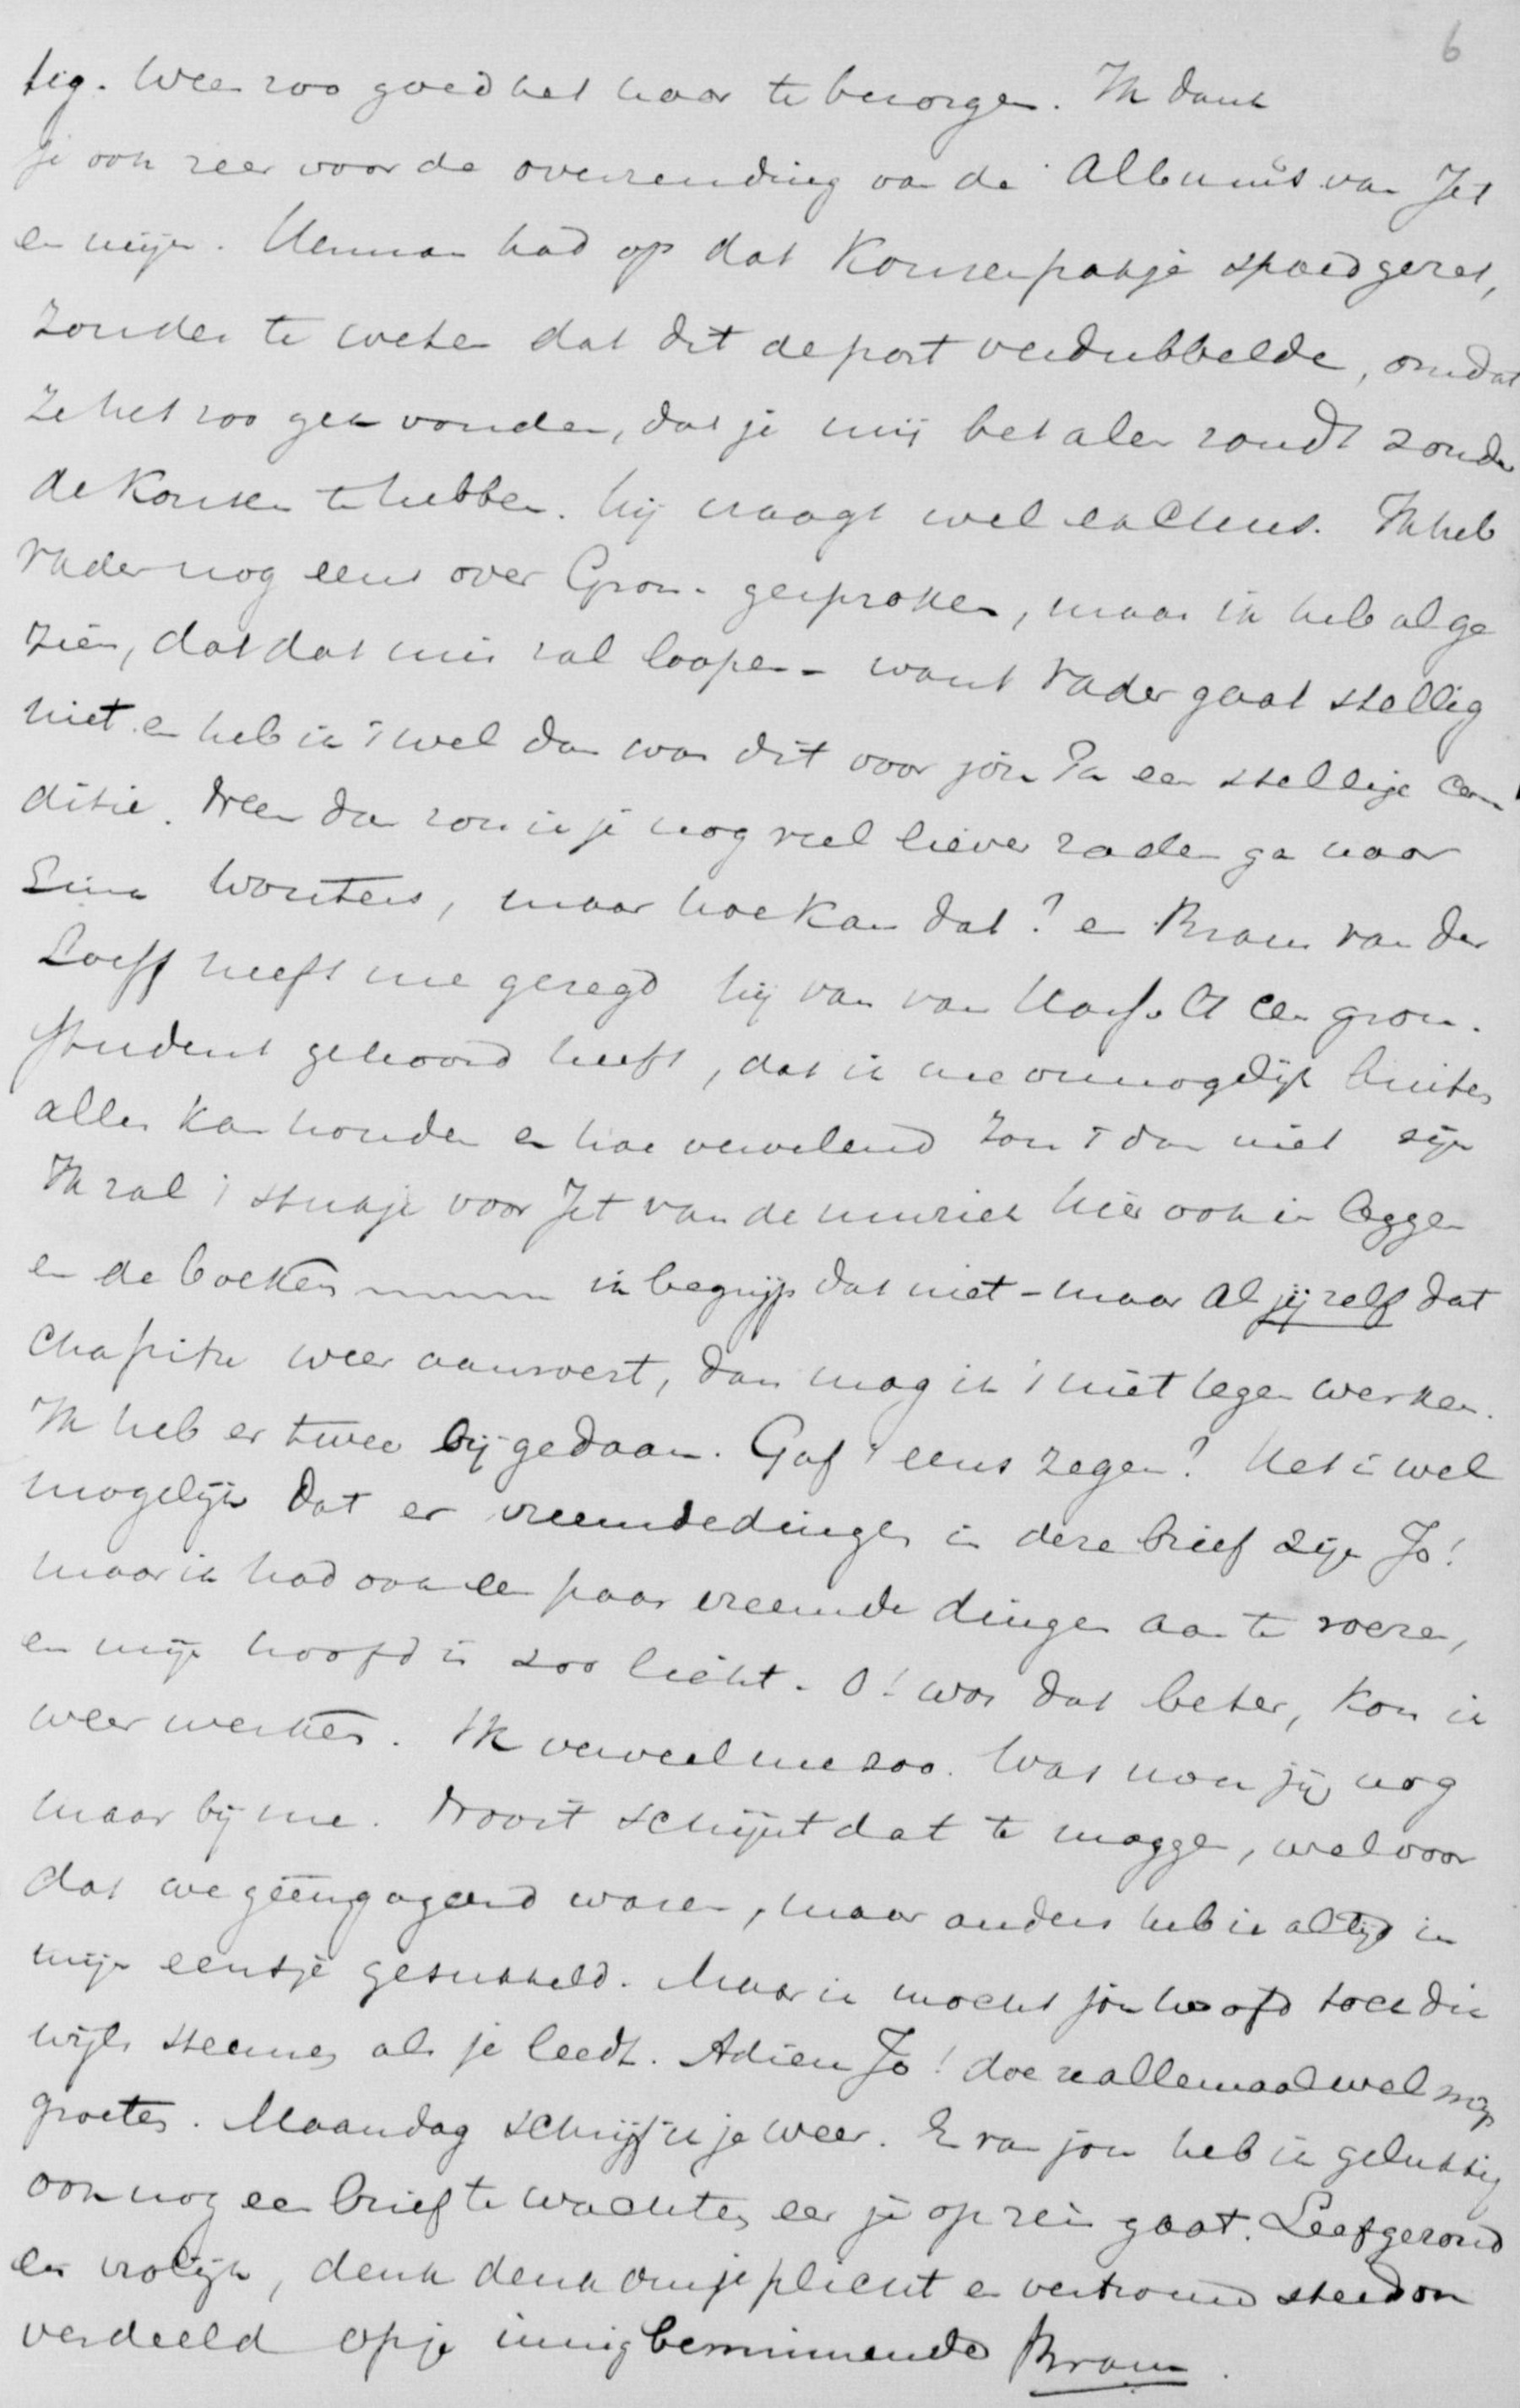 6
tig. Wees zoo goed het haar te bezorgen. Ik dank
je ook zeer voor de overzending van de Albums van Jet
en mijn. Herman had op dat Kousenpakje spoed gezet,
zonder te weten dat dit de port verdubbelde, omdat
ze het zoo gek vonden, dat je mij betalen zoudt zonder
de Kousen te hebben. Hij vraagt wel excuus. Ik heb
Vader nog eens over Gron. gesproken, maar ik heb al ge
zien, dat dat mis zal loopen - want Vader gaat stellig
niet en heb ik 't wel dan was dit voor jou Pa een stellige con
ditie. Neen dan zou ik je nog veel liever raden ga naar
Sina Wouters, maar hoe kan dat? en Bram van der
Loeff heeft me gezegd hij van van een gron.
student gehoord heeft, dat ik me onmogelijk buiten
alles kan houden en hoe vervelend zou 't dan niet zijn
Ik zal 't stukje voor Jet van de muziek hier ook in leggen
en de boeken ik begrijp dat niet - maar al jij zelf dat
chapitre weer aanroert, dan mag ik 't niet tegen werken.
Ik heb er twee bij gedaan. Gaf 't eens zegen! Het is wel
mogelijk dat er vreemde dingen in deze brief zijn Jo!
maar ik had ook een paar vreemde dingen aan te roeren,
en mijn hoofd is zoo licht. O! was dat beter, kon ik
weer werken. Ik verveel me zoo. Was nou jij nog
maar bij me. Nooit schijnt dat te moggen, wel voor
dat we geëngageerd waren, maar anders heb ik altijd in
mijn eentje gesukkeld. Maar ik mocht jou hoofd toch dik
wijls steunen als je leedt. Adieu Jo! doe ze allemaal wel mijn
groeten. Maandag schrijf ik je weer. En van jou heb ik gelukkig
ook nog een brief te wachten, eer je op reis gaat. Leef gezond
en vrolijk, denk denk om je plicht en vertrouw steeds on
verdeeld op je innig beminnende Bram.